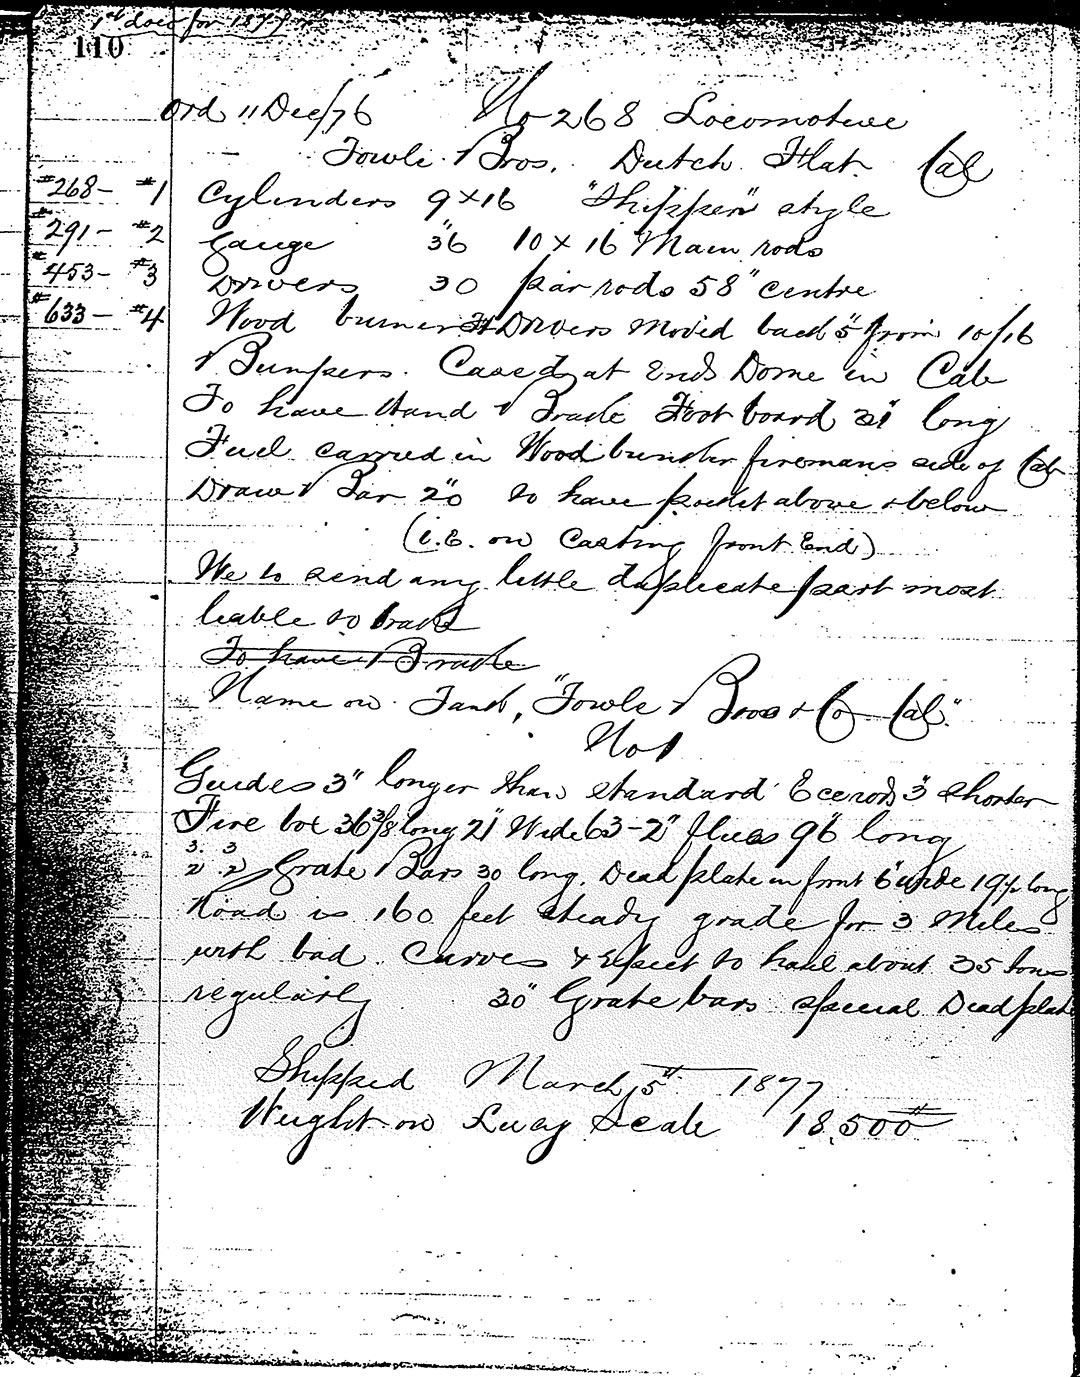 1st loco for 1877
110
Ord 11 Dec/76 No 268 Locomotive
Towle Bros. Dutch Flat. Cal
#268- #1 Cylinders 9 x 16 "Shippen" style
#291- #2 Gauge 36" 10 x 16 Main rods
#453- #3 Drivers 30 par rods 58" centre
#633- #4 Wood burner Drivers moved back 5" from 10/16
Bumpers. Cased at Ends Dome in Cab
To have Hand Brake Foot board 21" long
Fuel carried in Wood bunker firemans side of Cab
Draw Bar 20" to have pocket above & below
(i.E. on Casting front End)
We to send any little duplicate part most
liable to break
To have Brake
Name on Tank, "Towle Bros & Co Cal."
No 1
Guides 3" longer than standard Ecc rods 3" shorter
Fire box 36 3/8 long 21" Wide 63-2" flues 96" long
3. 3
2 . 2 Grate Bars 30 long. Dead plate in front 6" wide 19½ long
Road is 160 feet steady grade for 3 Miles
with bad Curves & Expect to haul about 35 tons
regularly 30" Grate bars special Dead plate
Shipped March 5th 1877
Weight on Lucy Scale 18,500#